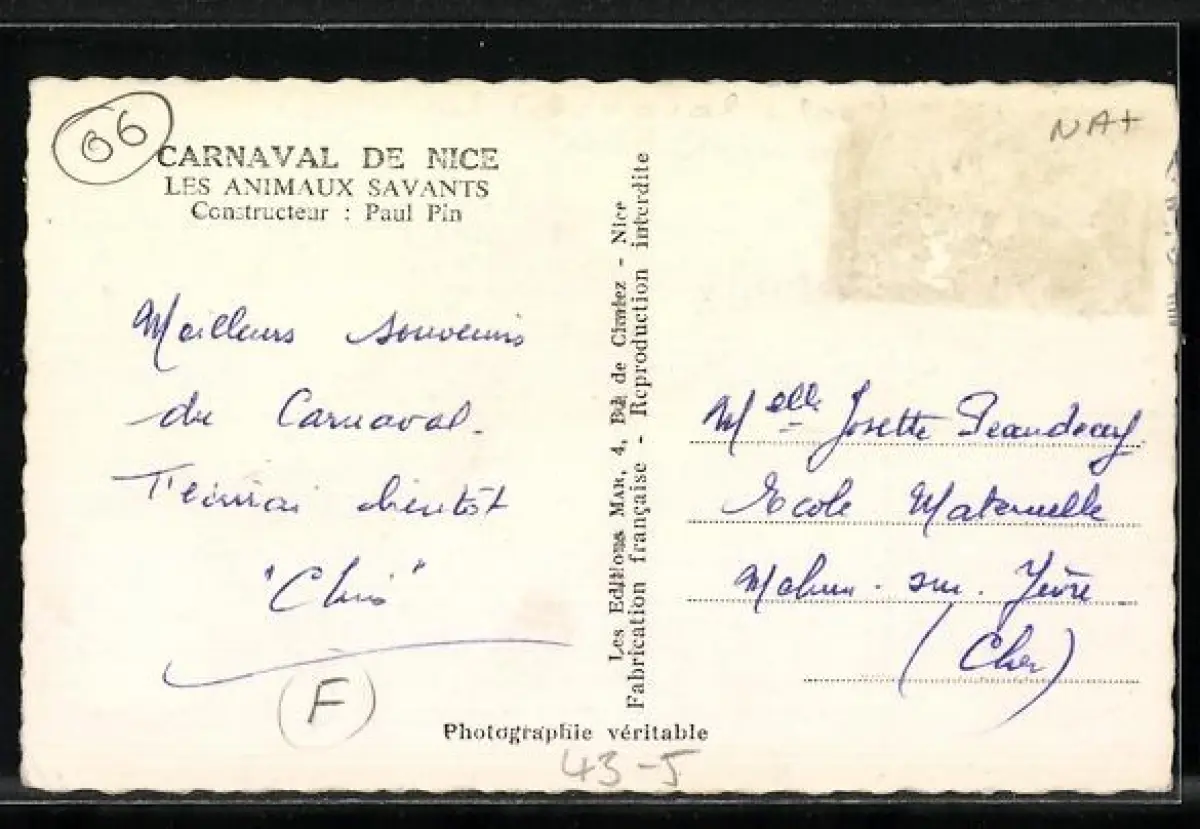 06
NAT
CARNAVAL DE NICE
LES ANIMAUX SAVANTS
Constructeur : Paul Pin
Meilleurs souvenirs
du Carnaval.
bientôt
"Chris"
F
Les Editions MAR, 4, Bd. de Cimiez - Nice
Fabrication française - Reproduction interdite
Melle Josette
Ecole Maternelle
Mehun-sur-Yèvre
(Cher)
Photographie véritable
43-5